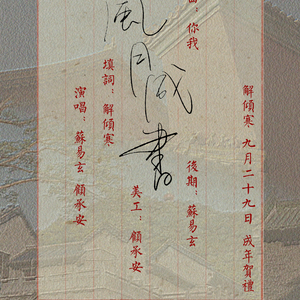 解傾寒 九月二十九日 成年賀禮
後期：蘇易玄
曲：你我
風月成書
美工：顧承安
填詞：解傾寒
演唱：蘇易玄 顧承安